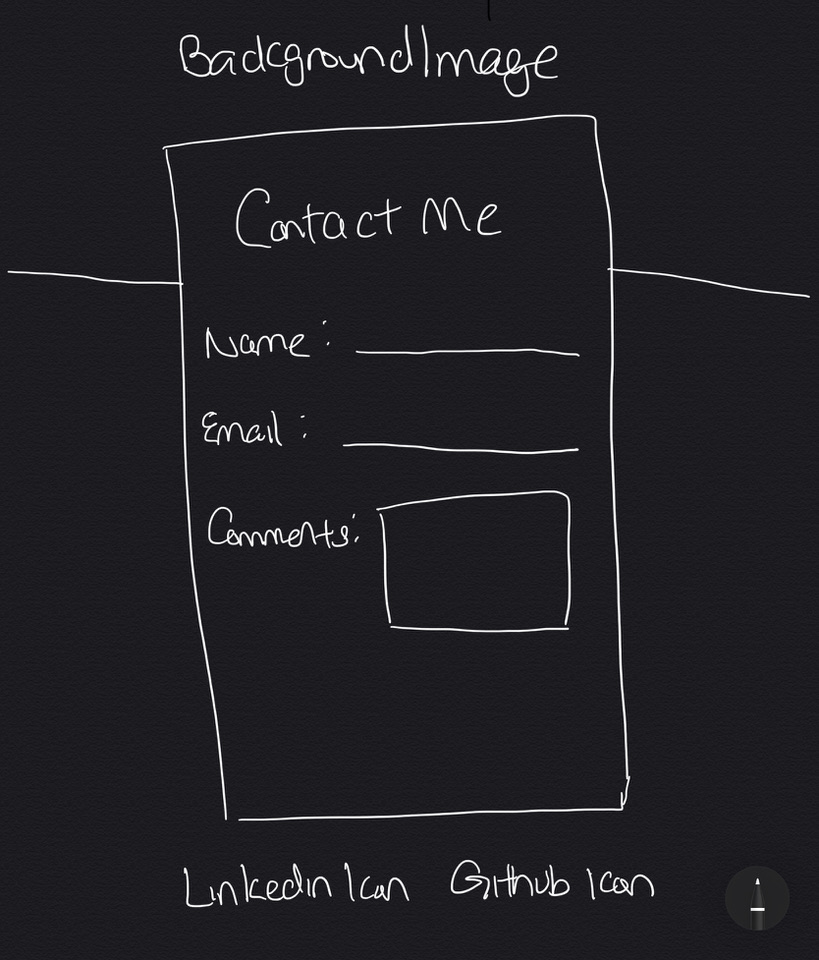 Background Image
Contact Me
Name:
Email:
Comments:
Linkedin Icon Github Icon